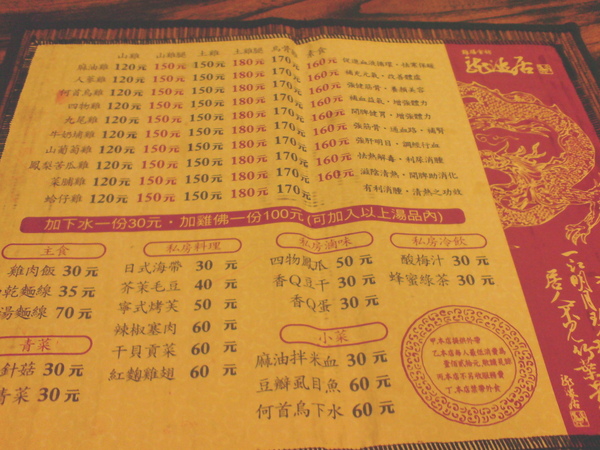 山雞 山雞腿 土雞 土雞腿 烏骨雞 素食
麻油雞 120元 150元 150元 180元 170元 160元 促進血液循環,祛寒保暖
人蔘雞 120元 150元 150元 180元 170元 160元 補充元氣,改善體虛
何首烏雞 120元 150元 150元 180元 170元 160元
四物雞 120元 150元 150元 180元 170元 160元 補血益氣,增強體力
九尾雞 120元 150元 150元 180元 170元 160元 開脾健胃,增強體力
牛奶埔雞 120元 150元 150元 180元 170元 160元 強筋骨、通血路、補腎
山葡萄雞 120元 150元 150元 180元 170元 160元 強肝明目、調經行血
鳳梨苦瓜雞 120元 150元 150元 180元 170元 160元 祛熱解毒、利尿消腫
菜脯雞 120元 150元 150元 180元 170元 160元 滋陰清熱、開脾助消化
蛤仔雞 120元 150元 150元 180元 170元 有利消腫、清熱之功效
加下水一份30元,加雞佛一份100元(可加入以上湯品內)
主食
雞肉飯 30元
乾麵線 35元
湯麵線 70元
青菜
針菇 30元
青菜 30元
私房料理
日式海帶 30元
芥菜毛豆 40元
寧式烤芙 50元
辣椒塞肉 60元
干貝貢菜 60元
紅麴雞翅 60元
私房滷味
四物鳳爪 50元
香Q豆干 30元
香Q蛋 30元
小菜
麻油拌米血 30元
豆瓣虱目魚 60元
何首烏下水 60元
私房冷飲
酸梅汁 30元
蜂蜜綠茶 30元
甲.本店提供外帶
丁.本店禁帶外食